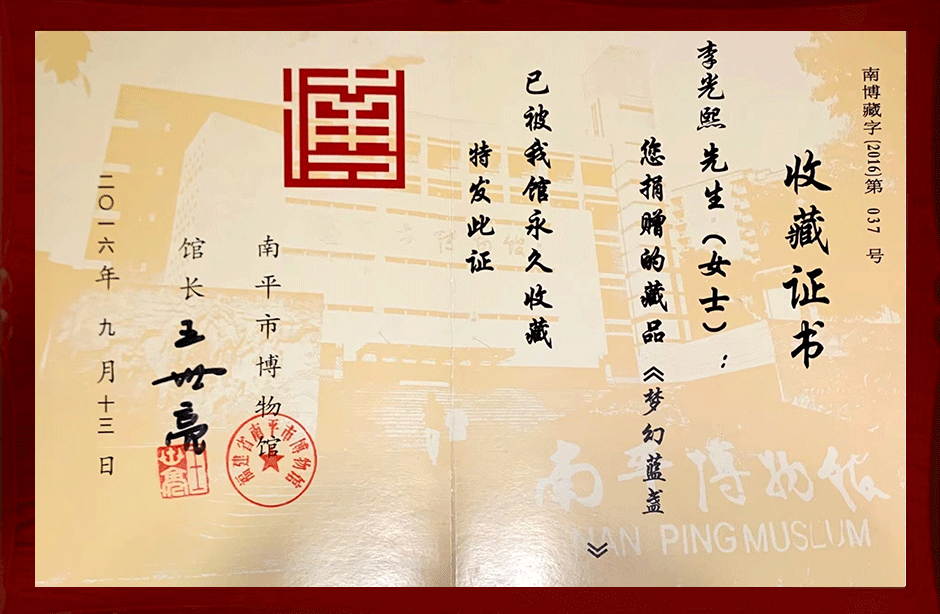 南博藏字(2016)第 037 号
收藏证书
李光熙 先生（女士）：
您捐赠的藏品《梦幻蓝盏
》
已被我馆永久收藏
特发此证
南平市博物馆
馆长 王世亮
二〇一六年 九月十三日
福建省南平市博物馆
南平博物馆
NAN PING MUSLUM